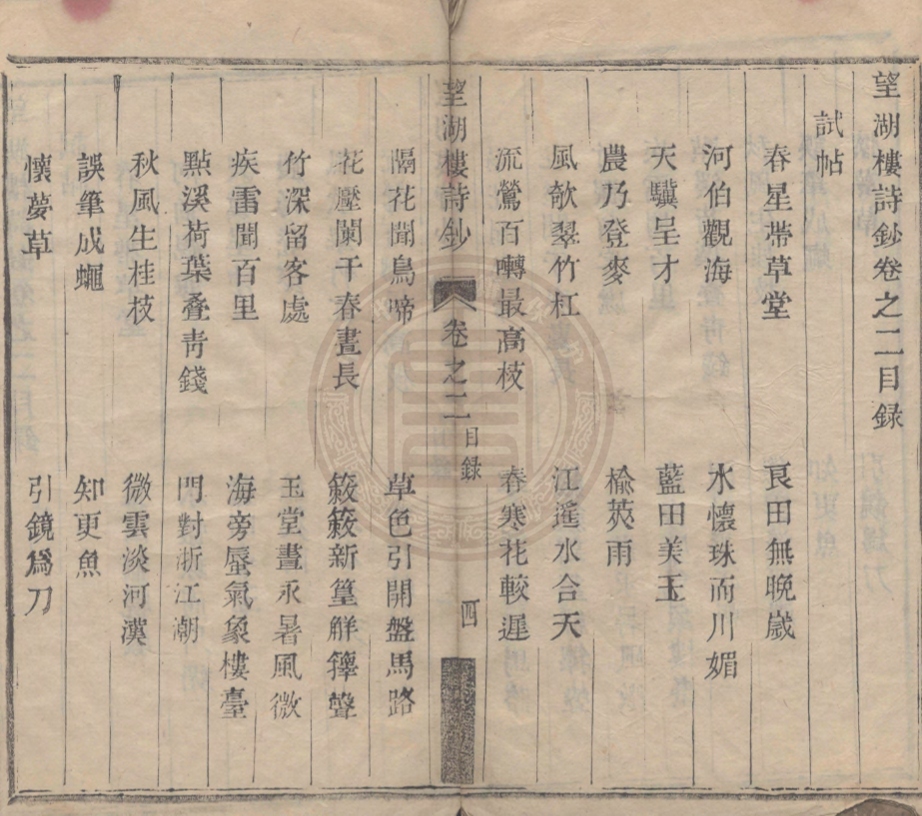 望湖樓詩鈔卷之二目録
試帖
春星帶草堂 良田無晚歲
河伯觀海 水懷珠而川媚
天驥呈才 藍田美玉
農乃登麥 榆莢雨
風欹翠竹杠 江遙水合天
流鶯百囀最高枝 春寒花較遲
望湖樓詩鈔 卷之二 目録 四
隔花聞鳥啼 草色引開盤馬路
花壓闌干春晝長 簌簌新篁解籜聲
竹深留客處 玉堂晝永暑風微
疾雷聞百里 海旁蜃氣象樓臺
點溪荷葉叠青錢 門對浙江潮
秋風生桂枝 微雲淡河漢
誤筆成蠅 知更魚
懷夢草 引鏡爲刀